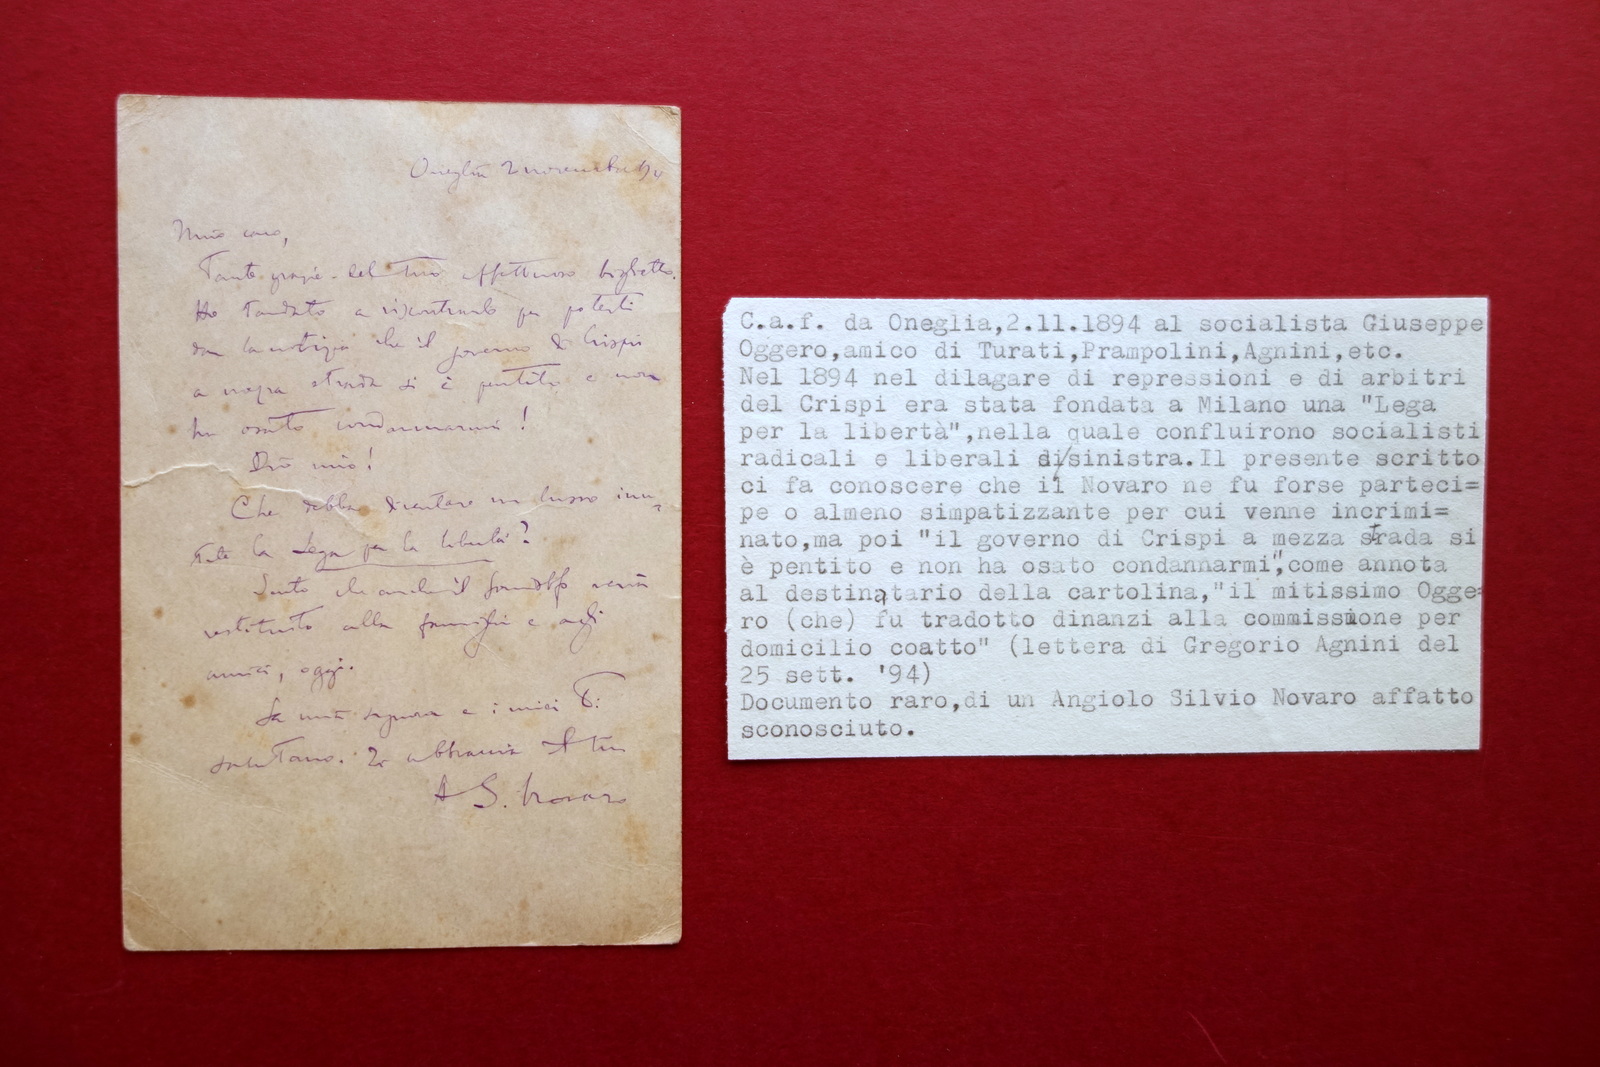 Oneglia 2 novembre 94
Mio caro,
Tante grazie del tuo affettuoso biglietto.
Ho tardato a riscontrarlo per poterti
dar la notizia che il governo di Crispi
a mezza strada si è pentito e non
ha osato condannarmi!
Dio mio!
Che debba diventare un lusso inu=
tile la Lega per la libertà?
Sento che anche il verrà
restituito alla famiglia e agli
amici, oggi.
La mia signora e i miei ti
salutano. Ti abbraccia il tuo
A S. Novaro
C.a.f. da Oneglia,2.11.1894 al socialista Giuseppe
Oggero,amico di Turati,Prampolini,Agnini,etc.
Nel 1894 nel dilagare di repressioni e di arbitri
del Crispi era stata fondata a Milano una "Lega
per la libertà",nella quale confluirono socialisti
radicali e liberali di/sinistra.Il presente scritto
ci fa conoscere che il Novaro ne fu forse parteci=
pe o almeno simpatizzante per cui venne incrimi=
nato,ma poi "il governo di Crispi a mezza strada si
è pentito e non ha osato condannarmi",come annota
al destinatario della cartolina,"il mitissimo Ogge=
ro (che) fu tradotto dinanzi alla commissione per
domicilio coatto" (lettera di Gregorio Agnini del
25 sett. '94)
Documento raro,di un Angiolo Silvio Novaro affatto
sconosciuto.